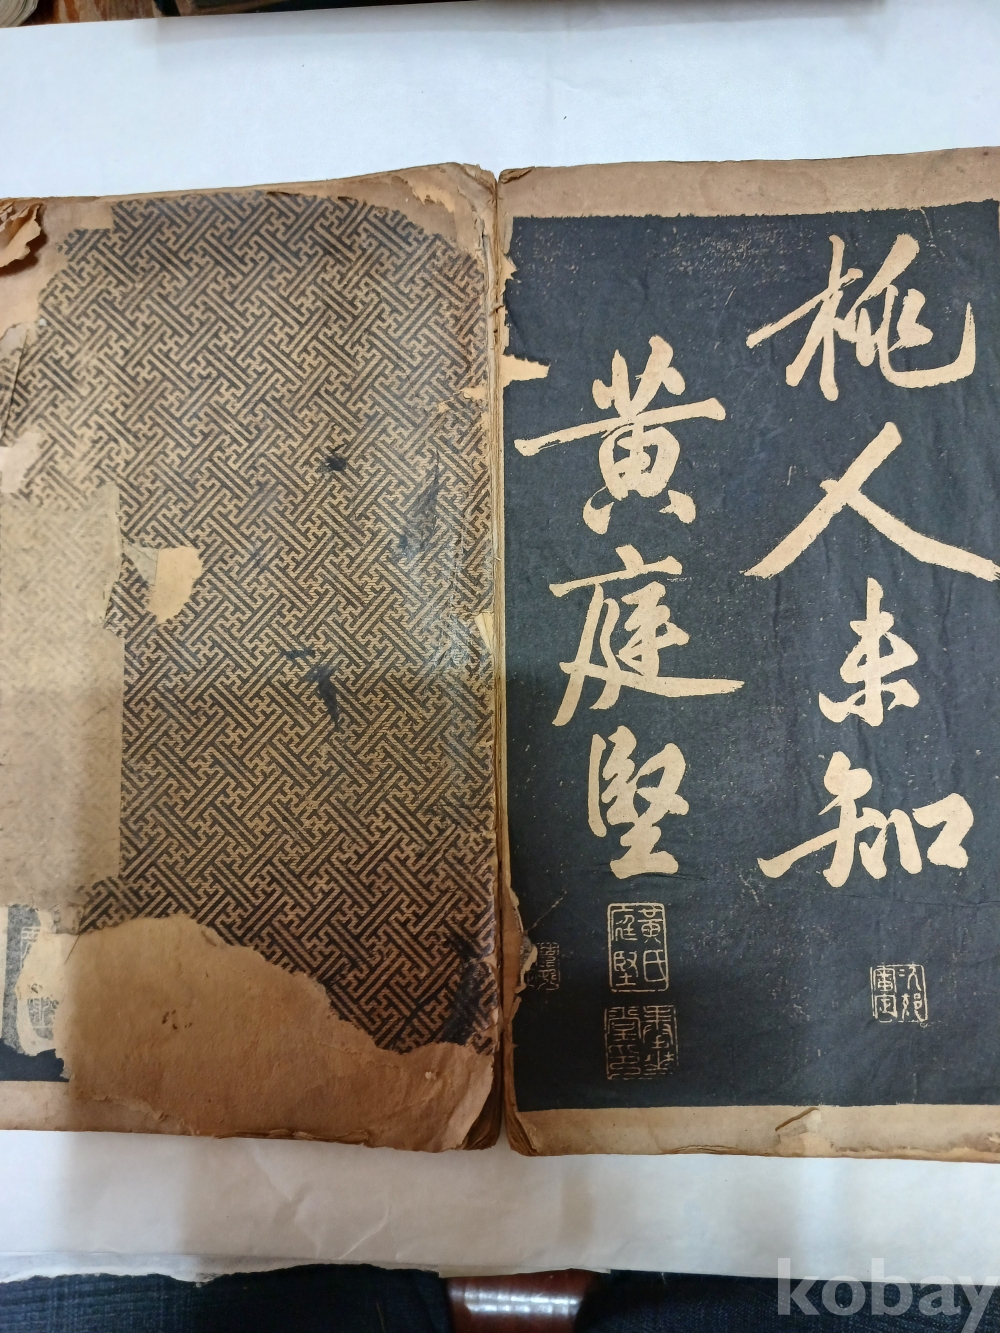 桃人未知
黄庭堅
黃氏
庭堅
kobay